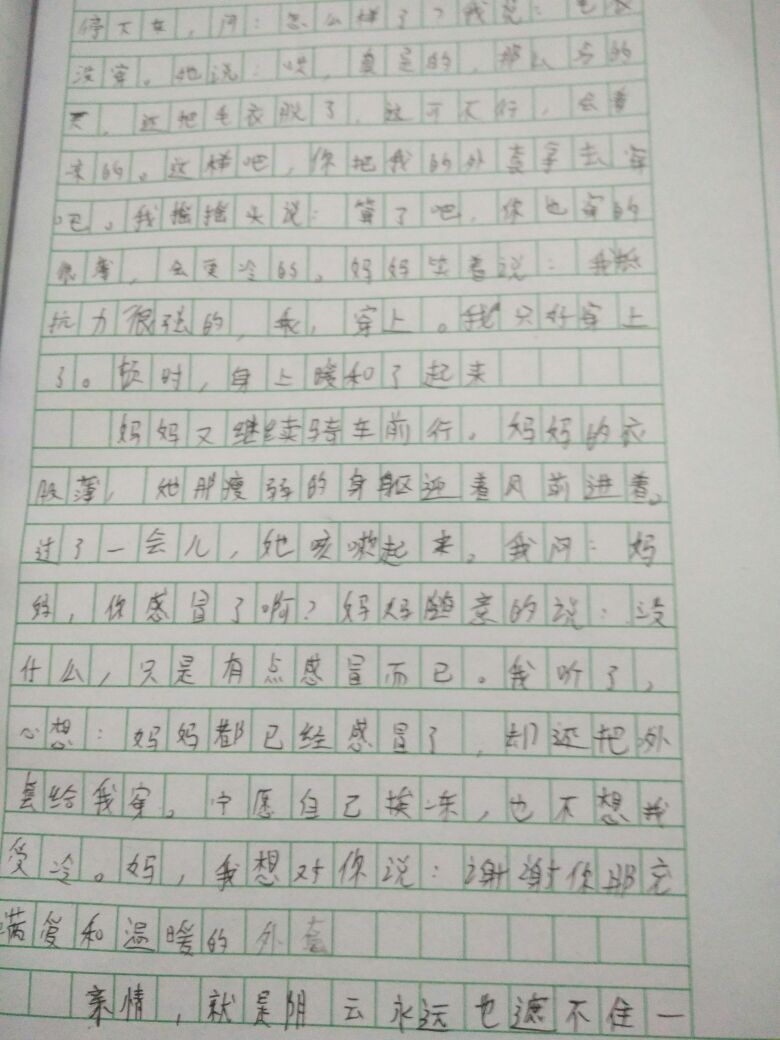 停下车，问：怎么样了？我说：毛衣
没穿。她说：唉，真是的，那么冷的
天，还把毛衣脱了，这可不行，会着
凉的。这样吧，你把我的外套拿去穿
吧。我摇摇头说：算了吧，你也穿的
很薄，会更冷的。妈妈笑着说：我抵
抗力很强的，来，穿上。我只好穿上
了。顿时，身上暖和了起来
妈妈又继续骑车前行。妈妈的衣
服薄，她那瘦弱的身躯迎着风前进着。
过了一会儿，她咳嗽起来。我问：妈
妈，你感冒了啊？妈妈随意的说：没
什么，只是有点感冒而已。我听了，
心想：妈妈都已经感冒了，却还把外
套给我穿。宁愿自己挨冻，也不想我
受冷。妈，我想对你说：谢谢你那充
满爱和温暖的外套
亲情，就是阴云永远也遮不住一